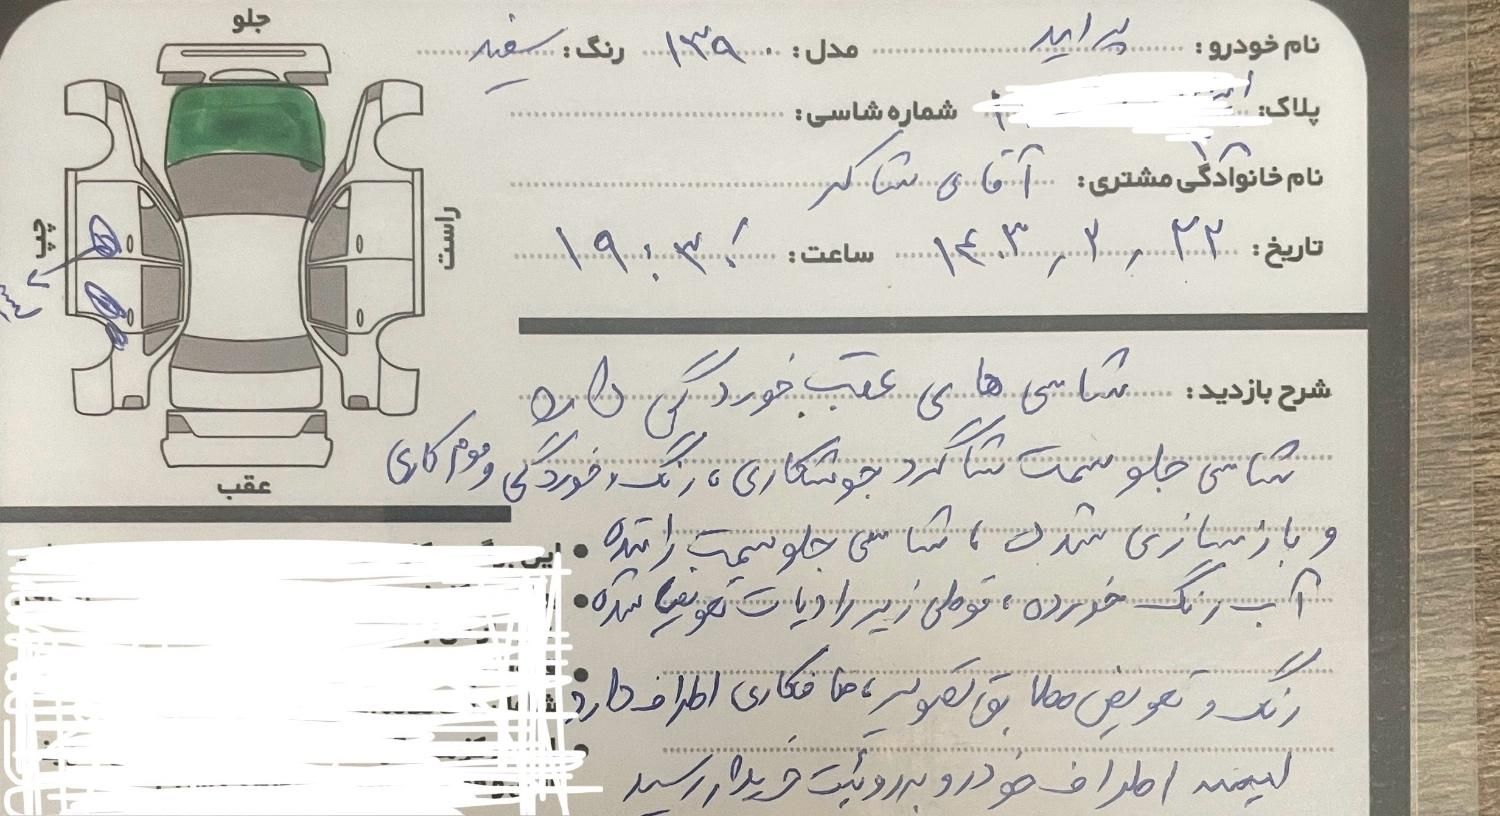 جلو
نام خودرو: پراید مدل: ۱۳۹۰ رنگ: سفید
پلاک: شماره شاسی:
نام خانوادگی مشتری: آقای شاکر
تاریخ: ۲۲ / ۲ / ۱۴۰۳ ساعت: ۱۹:۳۰
چپ
راست
عقب
شرح بازدید: شاسی های عقب خوردگی دارد
شاسی جلو سمت شاگرد جوشکاری، رنگ، خوردگی و موم کاری
و بازسازی شده، شاسی جلو سمت راننده
آب رنگ خورده، قوطی زیر رادیات تعویض شده
رنگ و تعویض مطابق تصویر، صافکاری اطراف دارد
لیسه اطراف خودرو به روئیت خریدار رسید